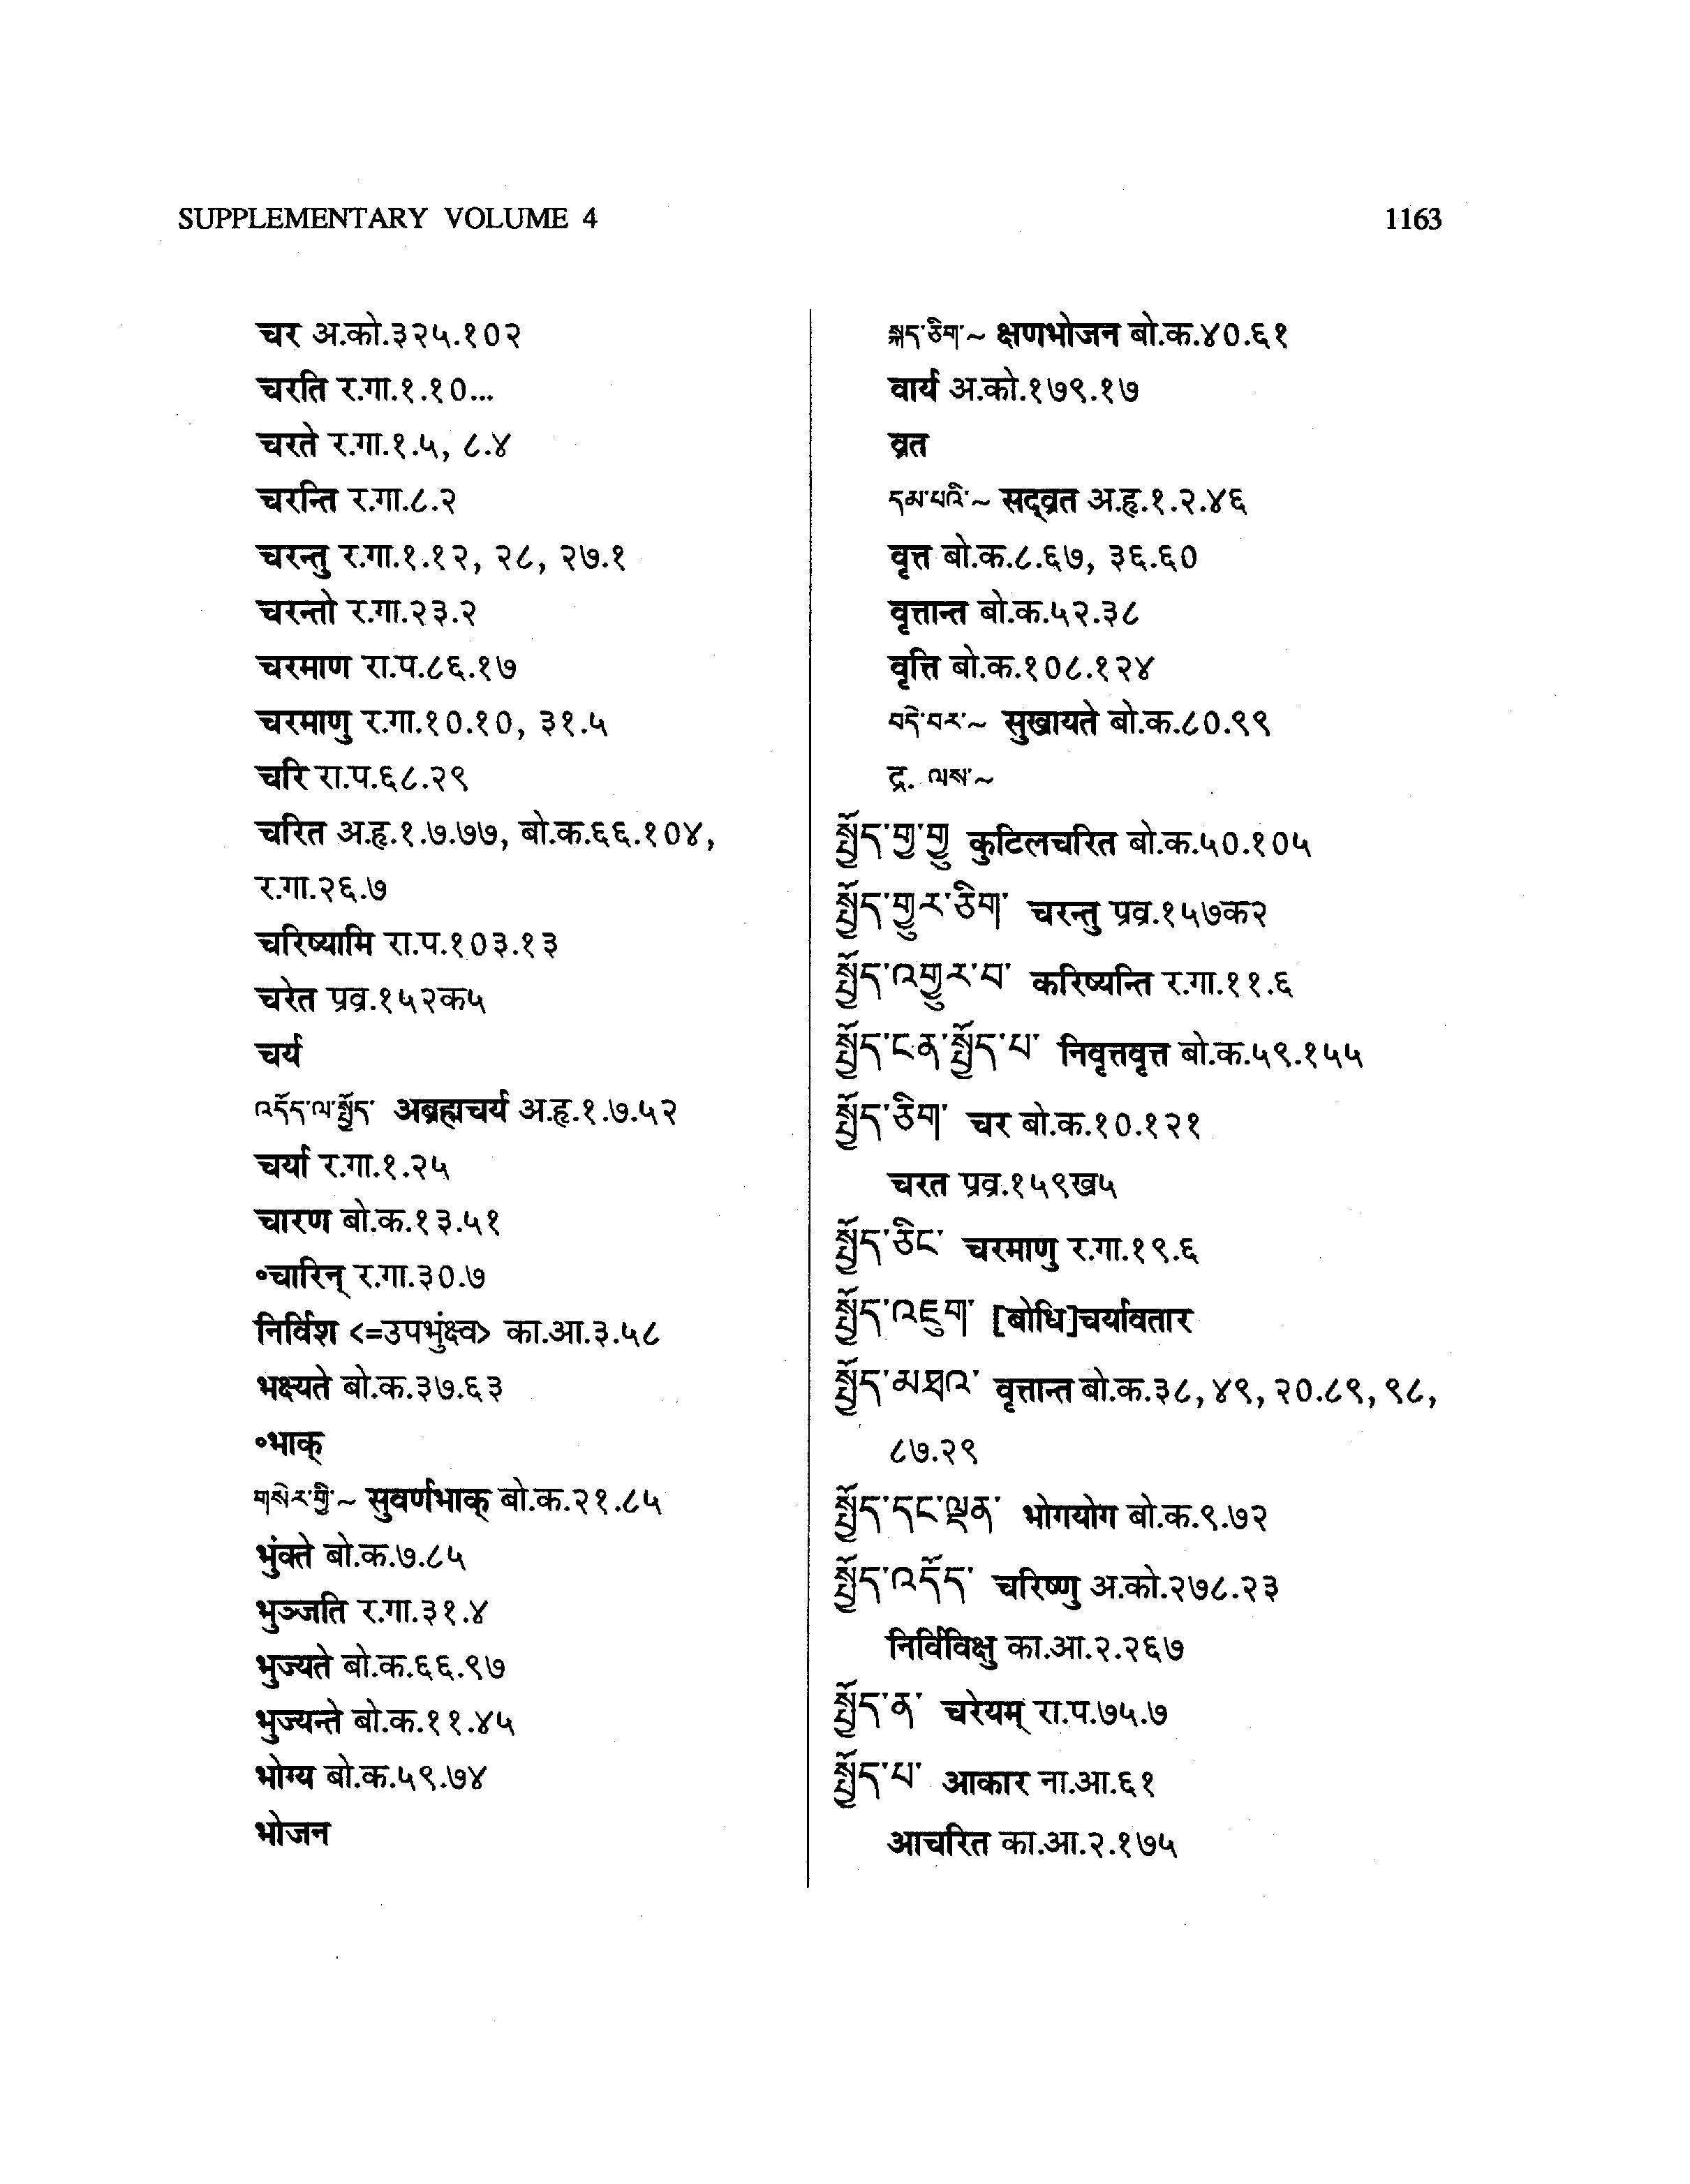 SUPPLEMENTARY VOLUME 4 1163
चर अ.को.३२५.१०२
चरति र.गा.१.१०...
चरते र.गा.१.५, ८.४
चरन्ति र.गा.८.२
चरन्तु र.गा.१.१२, २८, २७.१
चरन्तो र.गा.२३.२
चरमाण रा.प.८६.१७
चरमाणु र.गा.१०.१०, ३१.५
चरि रा.प.६८.२९
चरित अ.हृ.१.७.७७, बो.क.६६.१०४,
र.गा.२६.७
चरिष्यामि रा.प.१०३.१३
चरेत प्रव्र.१५२क५
चर्य
འདོད་ལ་སྤྱོད་ अब्रह्मचर्य अ.हृ.१.७.५२
चर्या र.गा.१.२५
चारण बो.क.१३.५१
॰चारिन् र.गा.३०.७
निर्विश <=उपभुंक्ष्व> का.आ.३.५८
भक्ष्यते बो.क.३७.६३
॰भाक्
གསེར་གྱི་~ सुवर्णभाक् बो.क.२१.८५
भुंक्ते बो.क.७.८५
भुञ्जति र.गा.३१.४
भुज्यते बो.क.६६.९७
भुज्यन्ते बो.क.११.४५
भोग्य बो.क.५९.७४
भोजन
སྐད་ཅིག་~ क्षणभोजन बो.क.४०.६१
वार्य अ.को.१७९.१७
व्रत
དམ་པའི་~ सद्व्रत अ.हृ.१.२.४६
वृत्त बो.क.८.६७, ३६.६०
वृत्तान्त बो.क.५२.३८
वृत्ति बो.क.१०८.१२४
བདེ་བར་~ सुखायते बो.क.८०.९९
द्र. ལས་~
སྤྱོད་གྱ་གྱུ कुटिलचरित बो.क.५०.१०५
སྤྱོད་གྱུར་ཅིག་ चरन्तु प्रव्र.१५७क२
སྤྱོད་འགྱུར་བ་ करिष्यन्ति र.गा.११.६
སྤྱོད་ངན་སྤྱོད་པ་ निवृत्तवृत्त बो.क.५९.१५५
སྤྱོད་ཅིག་ चर बो.क.१०.१२१
चरत प्रव्र.१५९ख५
སྤྱོད་ཅིང་ चरमाणु र.गा.१९.६
སྤྱོད་འཇུག་ [बोधि]चर्यावतार
སྤྱོད་མཐའ་ वृत्तान्त बो.क.३८, ४९, २०.८९, ९८,
८७.२९
སྤྱོད་དང་ལྡན་ भोगयोग बो.क.९.७२
སྤྱོད་འདོད་ चरिष्णु अ.को.२७८.२३
निर्विविक्षु का.आ.२.२६७
སྤྱོད་ན་ चरेयम् रा.प.७५.७
སྤྱོད་པ་ आकार ना.आ.६१
आचरित का.आ.२.१७५